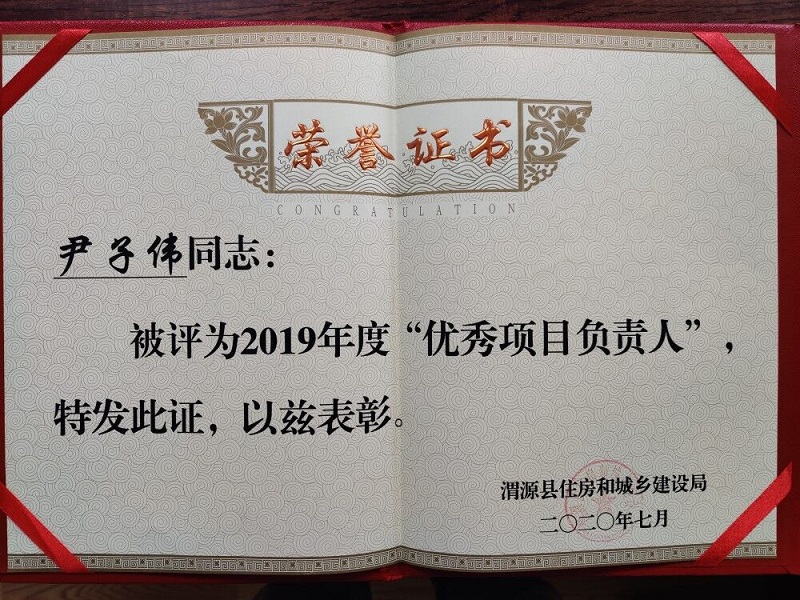 荣誉证书
CONGRATULATION
尹子伟同志：
被评为2019年度“优秀项目负责人”，
特发此证，以兹表彰。
渭源县住房和城乡建设局
二〇二〇年七月